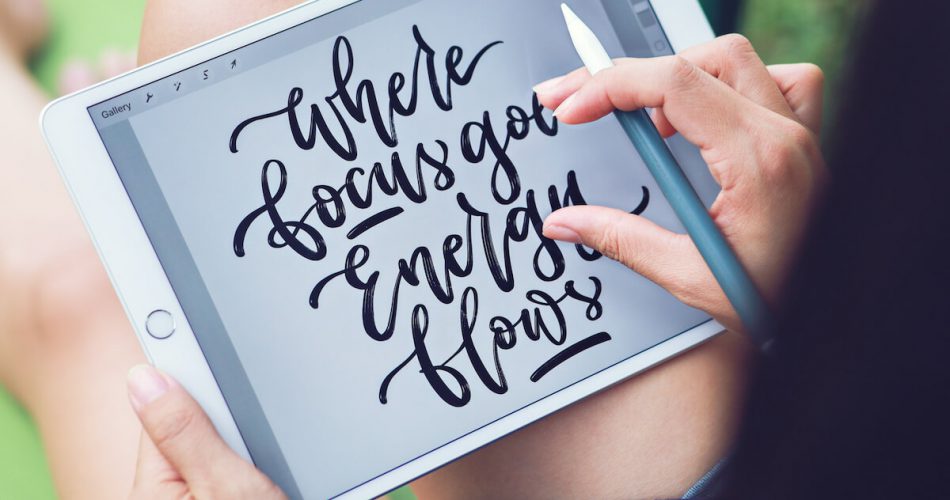 Gallery
where
focus goe
Energy
flows